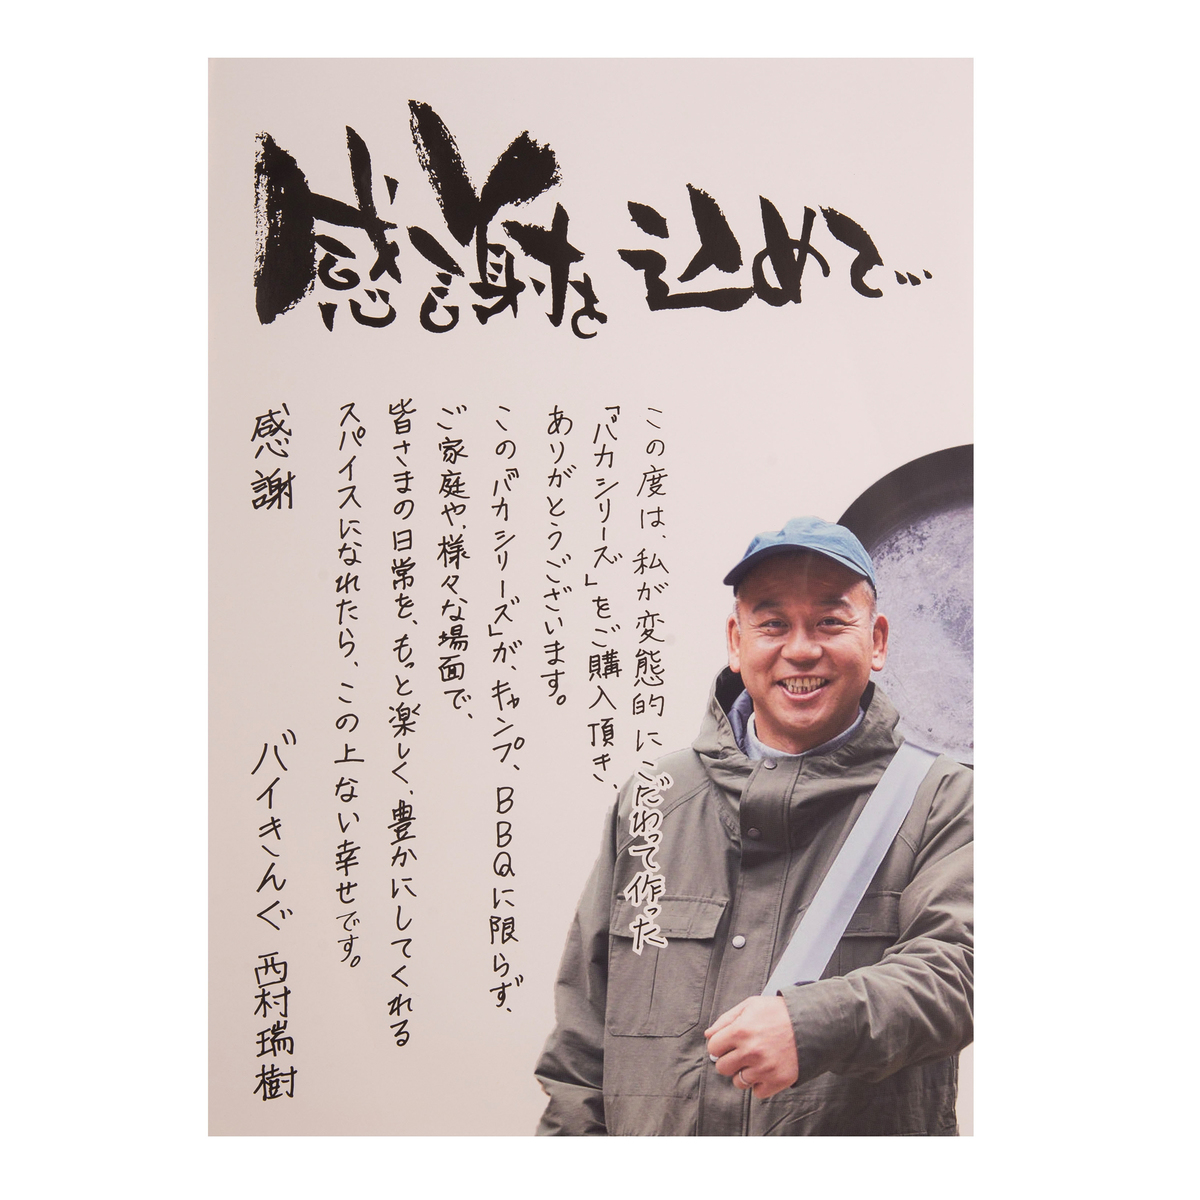 感謝を込めて…
この度は、私が変態的にこだわって作った
「バカシリーズ」をご購入頂き、
ありがとうございます。
この「バカシリーズ」が、キャンプ、BBQに限らず、
ご家庭や、様々な場面で、
皆さまの日常を、もっと楽しく、豊かにしてくれる
スパイスになれたら、この上ない幸せです。
感謝
バイきんぐ 西村瑞樹